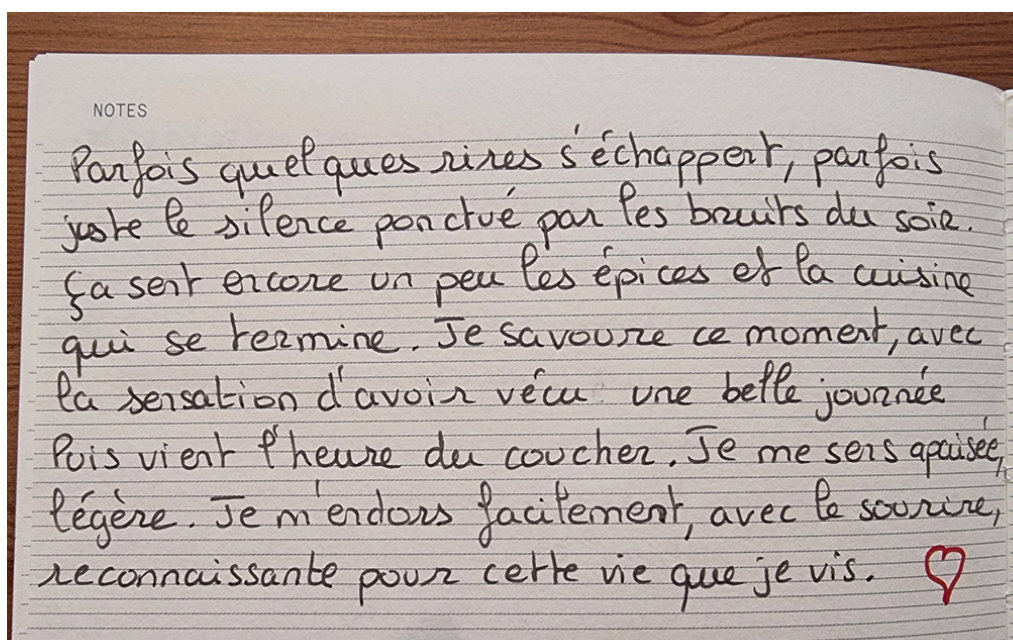 NOTES
Parfois quelques rires s'échappent, parfois
juste le silence ponctué par les bruits du soir.
Ça sent encore un peu les épices et la cuisine
qui se termine. Je savoure ce moment, avec
la sensation d'avoir vécu une belle journée
Puis vient l'heure du coucher. Je me sens apaisée,
légère. Je m'endors facilement, avec le sourire,
reconnaissante pour cette vie que je vis.